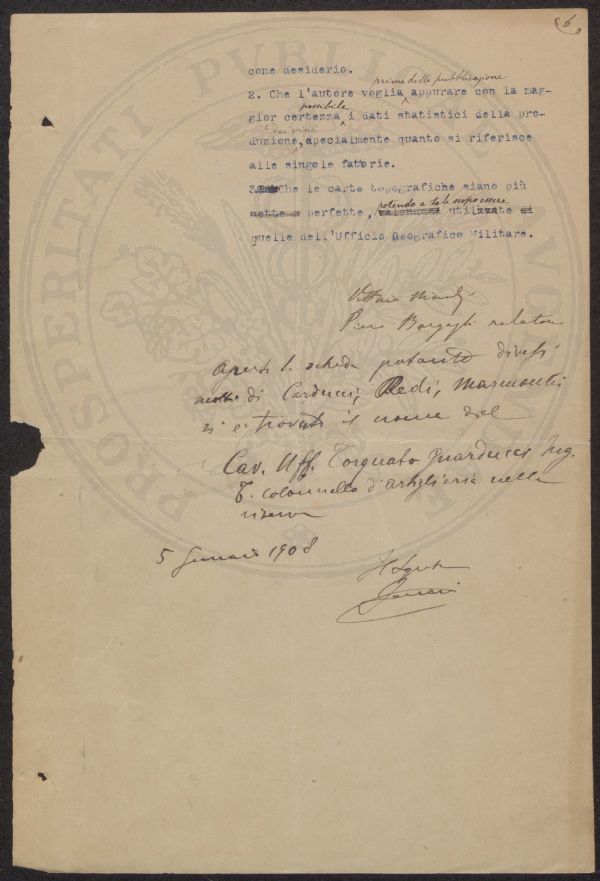 6
come desiderio.
prima della pubblicazione
2. Che l'autore voglia appurare con la mag-
possibile
gior certezza i dati statistici della pro-
dei vini
duzione, specialmente quanto si riferisce
alle singole fattorie.
3. Che le carte topografiche siano più
nette e perfette, potendo a tale scopo essere
utilizzate di
quelle dell'Ufficio Geografico Militare.
Vittorio
Piero Bargagli relatore
Aperta la scheda portante diversi
motti di Carducci, Redi, Marmontel
si è trovato il nome del
Cav. Uff. Torquato Guarducci Ing.
T. colonnello d'artiglieria nella
riserva
5 Gennaio 1908
Il Segret
PROSPERITATI PVBLICAE